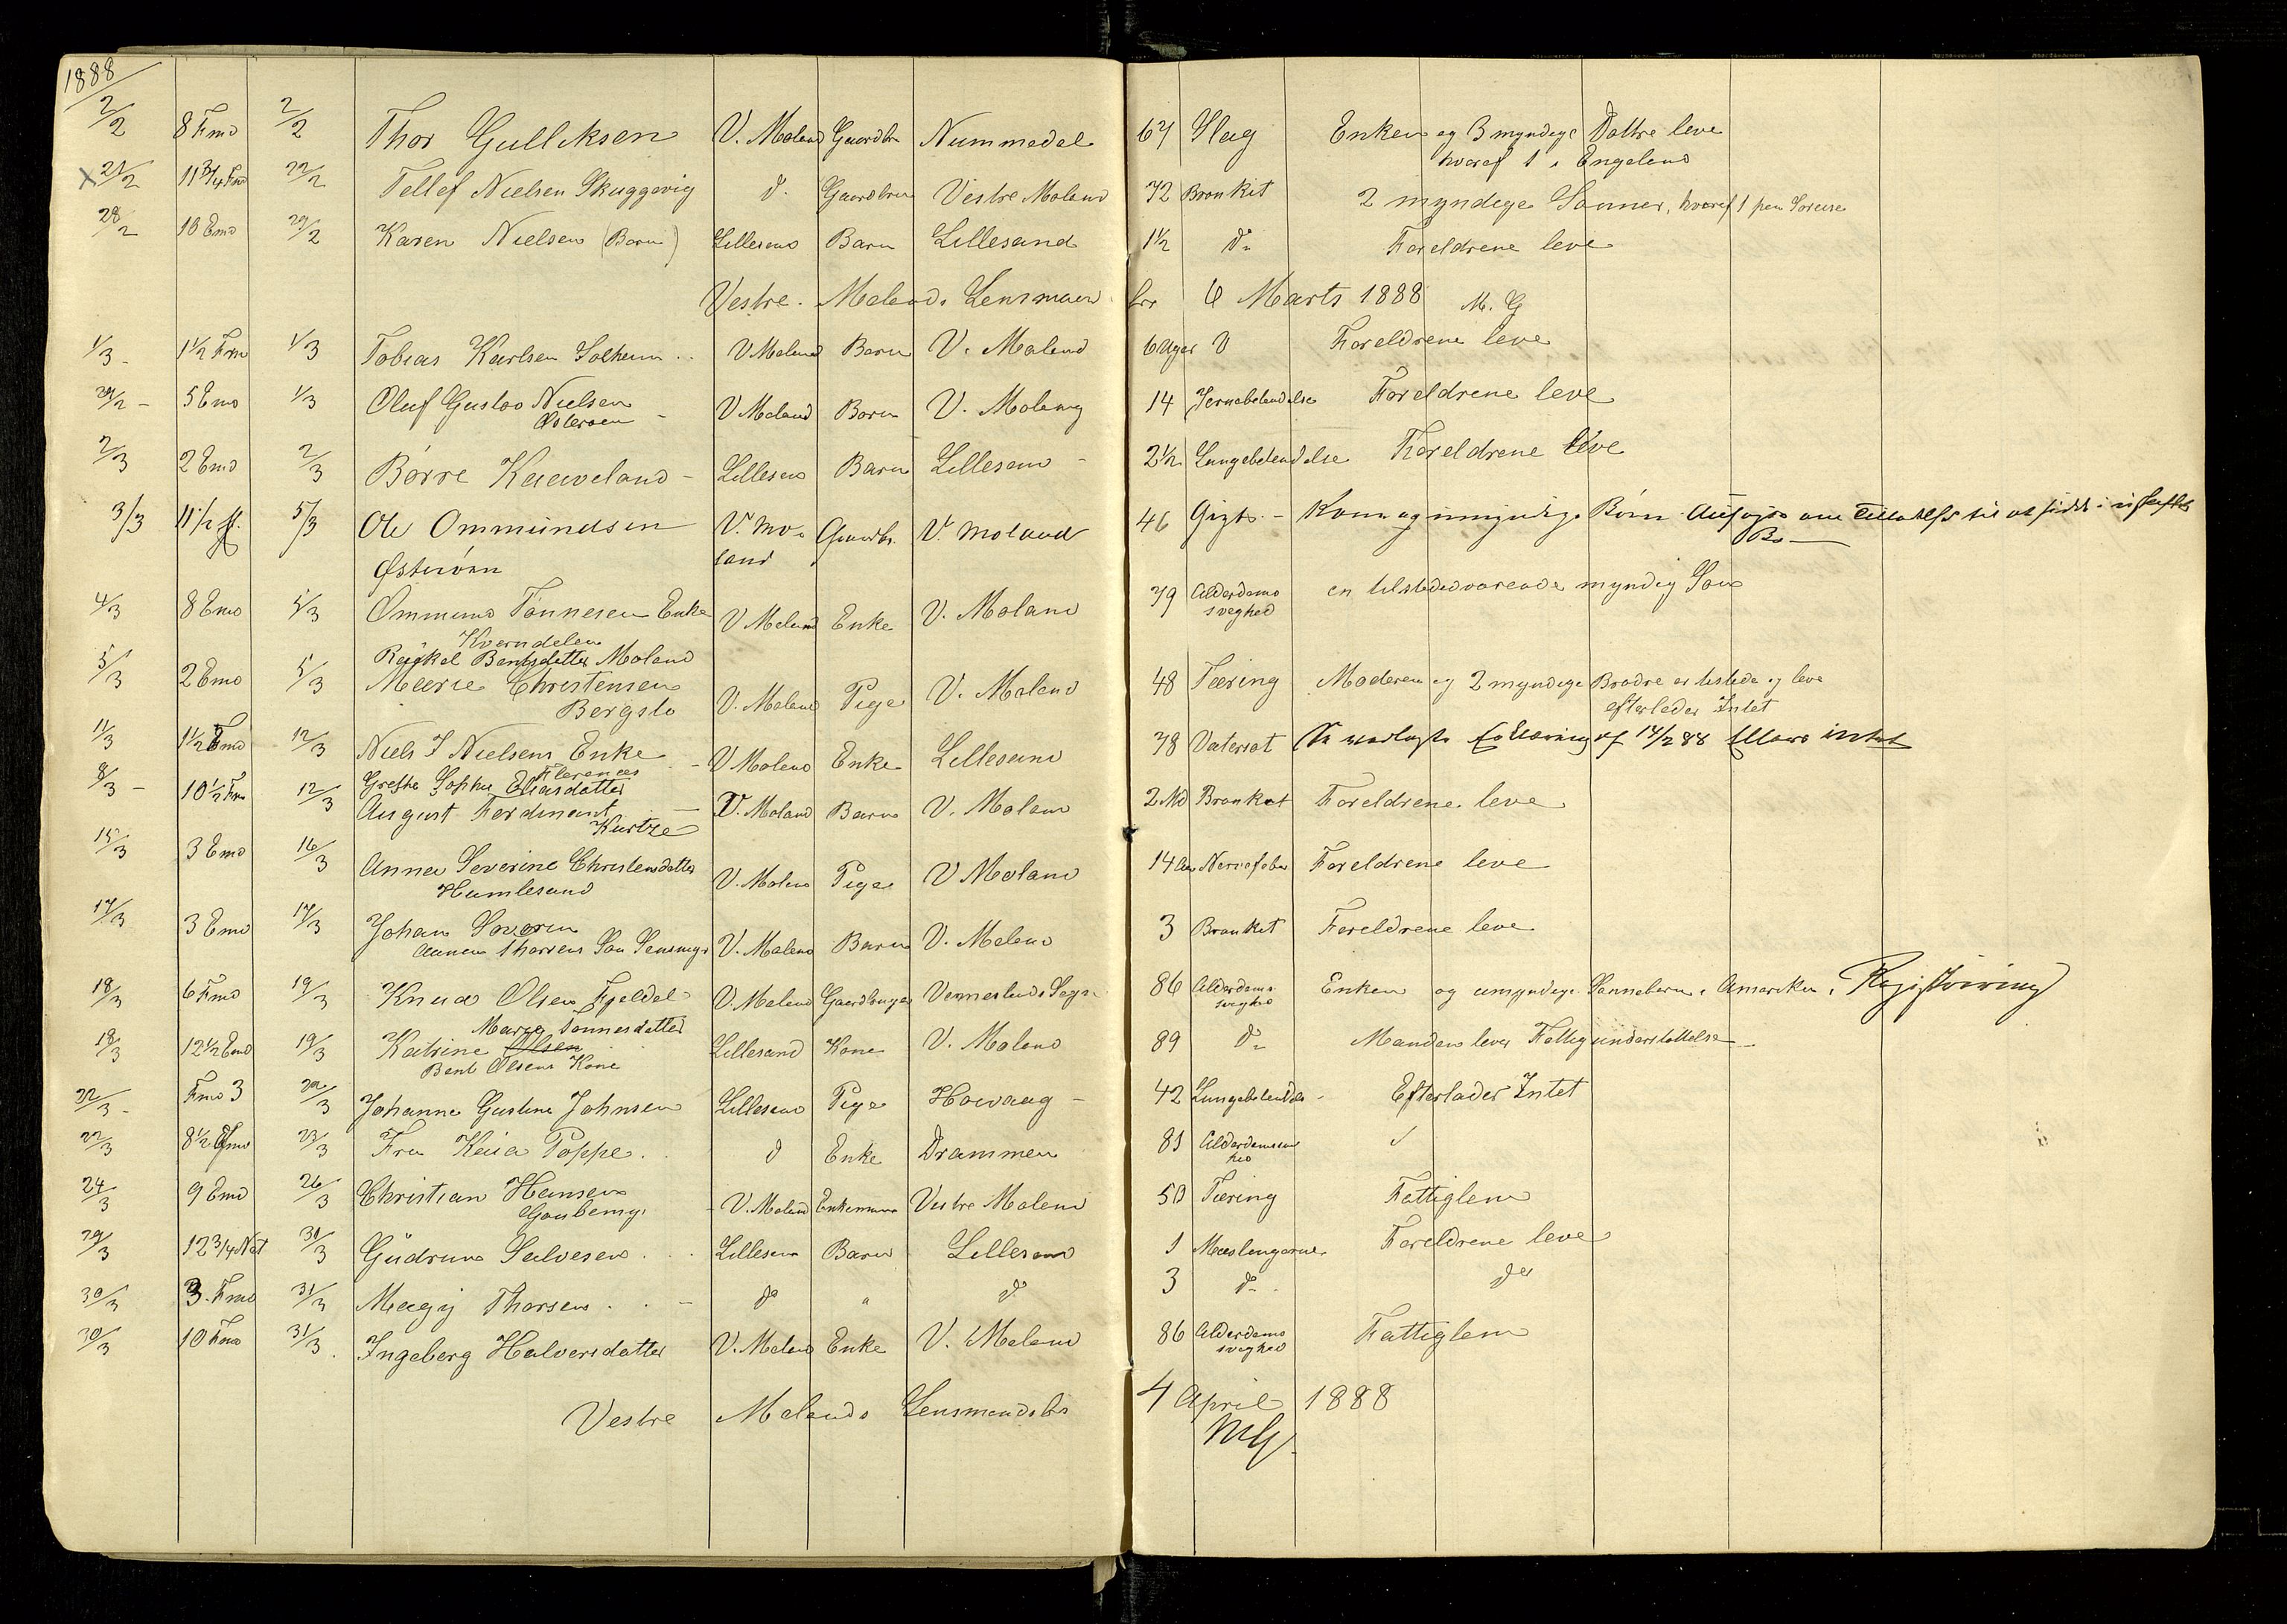 1888
2/2 8 Fmd 2/2 Thor Gulleksen V. Moland Gaardbr Nummedal 67 Slag Enken og 3 myndige Døttre leve
hvoraf 1 i Engeland
x 21/2 11 3/4 Fmd 22/2 Tellef Nielsen Skuggevig do. Gaardbru Vestre Moland 72 Bronkit 2 myndige Sønner, hvoraf 1 paa
28/2 10 Emd 29/2 Karen Nielsen (Barn) Lillesand Barn Lillesand 1½ do Foreldrene leve
Vestre Molands Lensmand br 6 Marts 1888 M. G
1/3 - 1½ Fmd 1/3 Tobias Karlsen Solheim .. V Moland Barn V. Moland 6 Uger Foreldrene leve
29/2 - 5 Emd 1/3 Oluf Gustav Nielsen V Moland Barn V. Moland 14 Jernebetendelse Foreldrene leve
2/3 2 Emd 2/3 Børre Lillesand Barn Lillesand - 2½ Lungebetendelse Foreldrene leve
3/3 11½ f. 5/3 Ole Ommundsen V. Mo- Gaardbr. V. Moland 46 Gigt. - Kone og umyndige Børn. Ansøger om Tilladelse til at sidde i uskiftet
Østerøen land Bo
4/3 8 Emd 5/3 Ommund Tønnesen Enke V Moland Enke V. Moland 79 Alderdoms en tilstedeværende myndig Søn
Kverndalen svaghed
Rakel Bentsdatter Moland
5/3 2 Emd 5/3 Marie Christensen V. Moland Pige V. Moland 48 Tæring Moderen og 2 myndige Brødre er tilstede og leve
Bergsto efterlader Intet
11/3 1½ Emd 12/3 Niels J Nielsens Enke - V Moland Enke Lillesand 78 Vatersot Erklæring af 14/2 88
Grethe Sophie Eliasdatter
8/3 - 10½ Fm 12/3 August Ferdinant - V. Moland Barn V. Moland 2 Md Bronkit Foreldrene leve
Kurtze
15/3 3 Emd 16/3 Anna Severine Christensdatter V. Moland Pige V Moland 14 Aar Nervefeber Foreldrene leve
Humlesand
17/3 3 Emd 17/3 Johan Severin V. Moland Barn V. Moland 3 Bronkit Foreldrene leve
Thorsens Søn
18/3 6 Fmd 19/3 Knud Olsen Fjeldal V. Moland Gaardbruger Vennesland Sogn 86 Alderdoms Enken og umyndige Sønnebørn i Amerika. Registrering
svaghed
Maria Tønnesdatter
18/3 12½ Emd 19/3 Katrine Olsen Lillesand Kone V. Moland 89 do Manden lever Fattigunderstøttelse -
Bent Olsens Kone
22/3 - Fmd 3 22/3 Johanne Gustine Johnsen Lillesand Pige Høvaag - 42 Lungebetendels - Efterlader Intet
22/3 8½ Emd 23/3 Fru Kaia Poppe . . do Enke Drammen 81 Alderdomssvag
hed
24/3 9 Emd 26/3 Christian Hansen - V. Moland Enkemand Vestre Moland 50 Tæring Fattiglem
29/3 12 3/4 Nat 31/3 Gudrun Salvesen . . . Lillesand Barn Lillesand 1 Meslingerne Foreldrene leve
30/3 3. Fmd 31/3 Magy Thorsen . . - do " do 3 do . do
30/3 10 Fmd 31/3 Ingeborg Halvorsdatter V. Moland Enke V. Moland 86 Alderdoms Fattiglem
svaghed
Vestre Molands Lensmandsbr 4 April 1888
MG